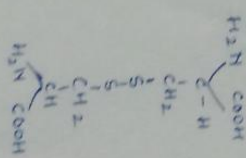 H₂N COOH
C-H
CH₂
S
S
CH₂
CH
H₂N COOH